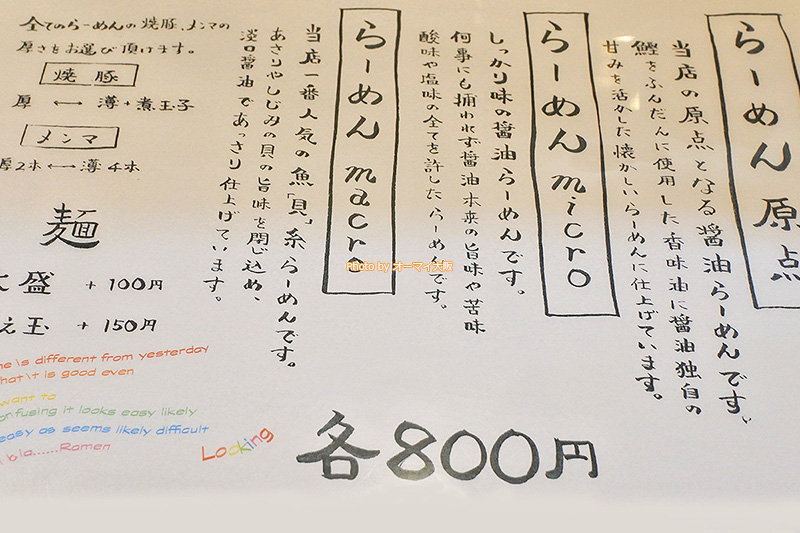 らーめん 原点
当店の原点となる醤油らーめんです。
鰹をふんだんに使用した香味油に醤油独自の
甘みを活かした懐かしいらーめんに仕上げています。
らーめん micro
しっかり味の醤油らーめんです。
何事にも捕われず醤油本来の旨味や苦味
酸味や塩味の全てを許したらーめんです。
らーめん macro
当店一番人気の魚「貝」系らーめんです。
あさりやしじみの貝の旨味を閉じ込め、
淡口醤油であっさり仕上げています。
全てのらーめんの焼豚、メンマの
厚さをお選び頂けます。
焼豚
厚 ←→ 薄+煮玉子
メンマ
厚2本←→薄4本
麺
大盛 + 100円
え玉 + 150円
is different from yesterday
is good even
want to
onfusing it looks easy likely
easy as seems likely difficult
bla......Ramen
Looking
各800円
Photo by オーマイ大阪